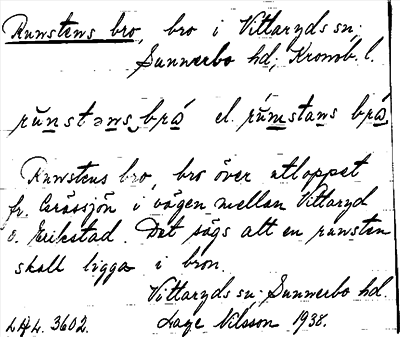 Runstens bro, bro i Vittaryds sn;
Sunnerbo hd; Kronob. l.
rŭnstəns brå el. rŭmstans brå.
Runstens bro, bro över utloppet
fr. sjön i vägen mellan Vittaryd
o. Erikstad. Det sägs att en runsten
skall ligga i bron.
Vittaryds sn; Sunnerbo hd.
3602. Lage Nilsson 1938.